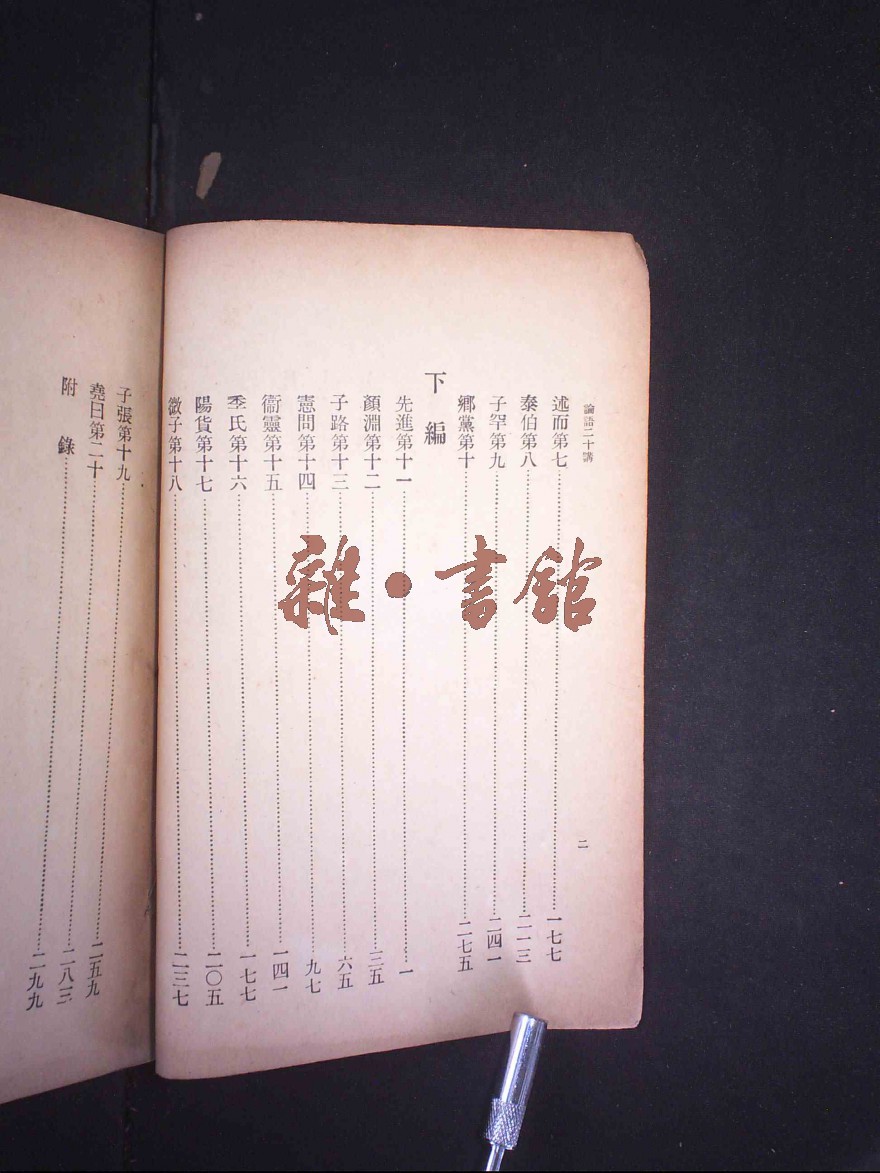 論語二十講
述而第七……一七七
泰伯第八……二一三
子罕第九……二四一
鄉黨第十……二七五
下編
先進第十一……一
顏淵第十二……三五
子路第十三……六五
憲問第十四……九七
衞靈第十五……一四一
季氏第十六……一七七
陽貨第十七……二〇五
微子第十八……二三七
二
子張第十九……二五九
堯曰第二十……二八三
附錄……二九九
雜·書館